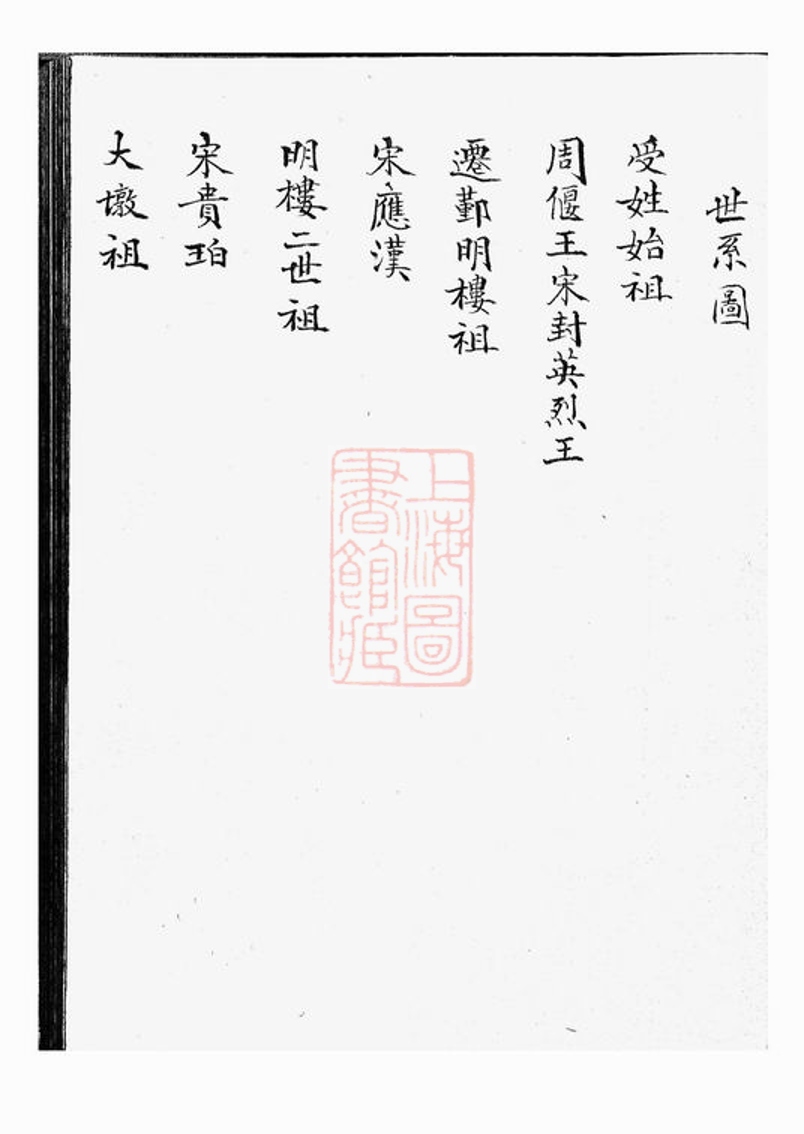 世系圖
受姓始祖
周偃王宋封英烈王
遷鄞明樓祖
宋應漢
明樓二世祖
宋貴珀
大墩祖
上海圖
書館藏